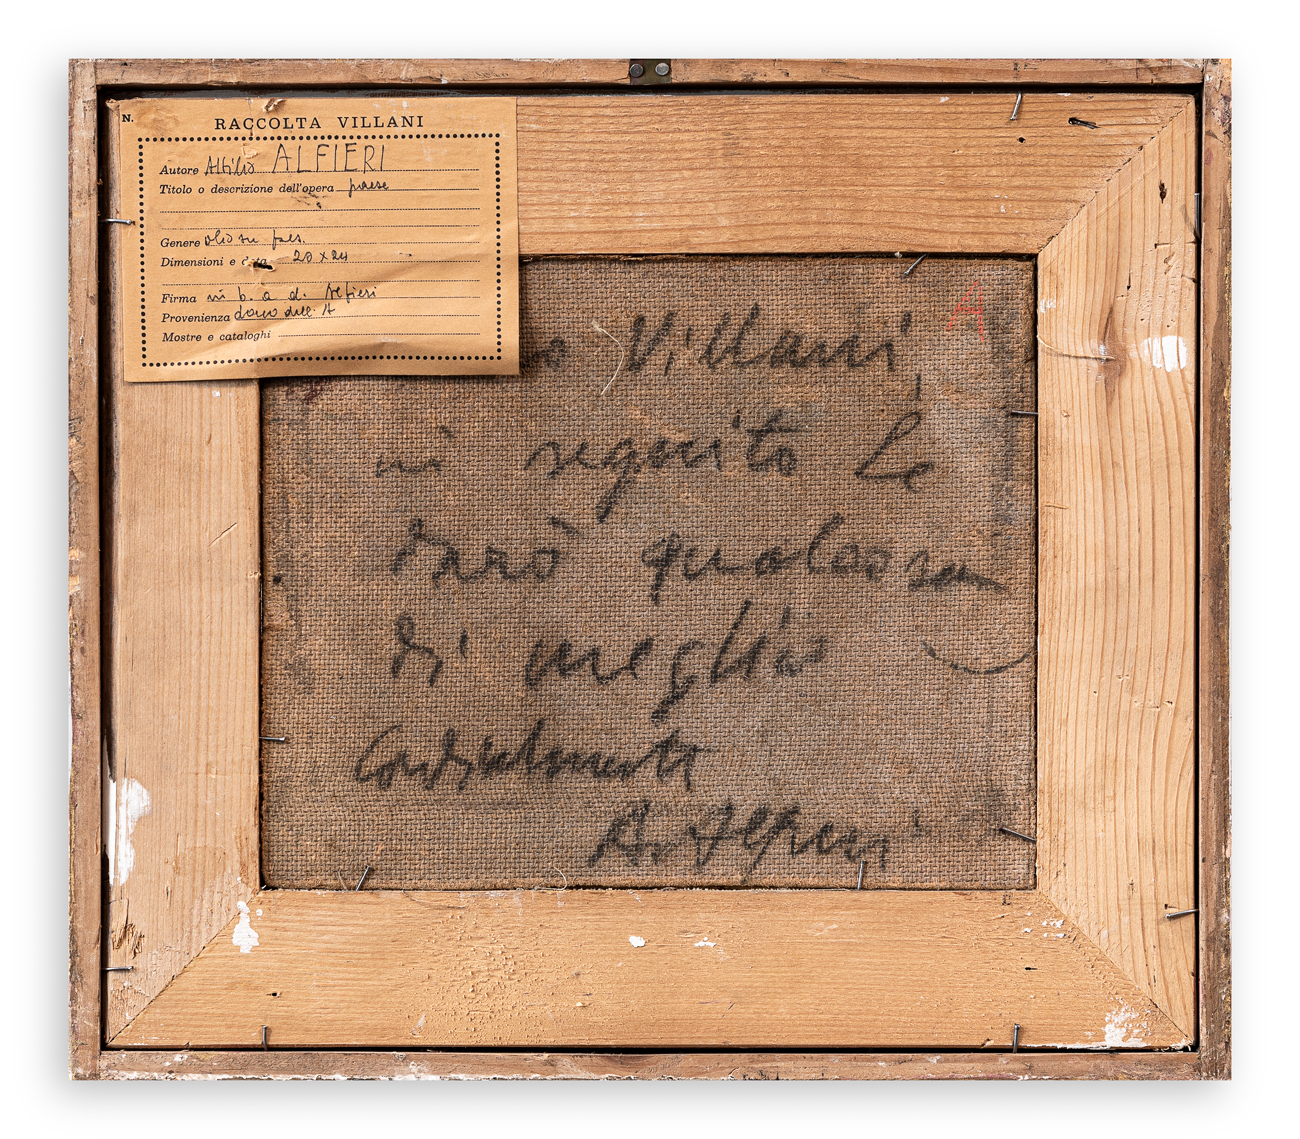 N.
RACCOLTA VILLANI
Autore Attilio ALFIERI
Titolo o descrizione dell'opera paese
Genere olio su
Dimensioni e data 20 x 24
Firma in b. a d. Alfieri
Provenienza dono dell'A
Mostre e cataloghi
A
Villani,
in seguito le
darò qualcosa
di meglio
Cordialmente
A. Alfieri